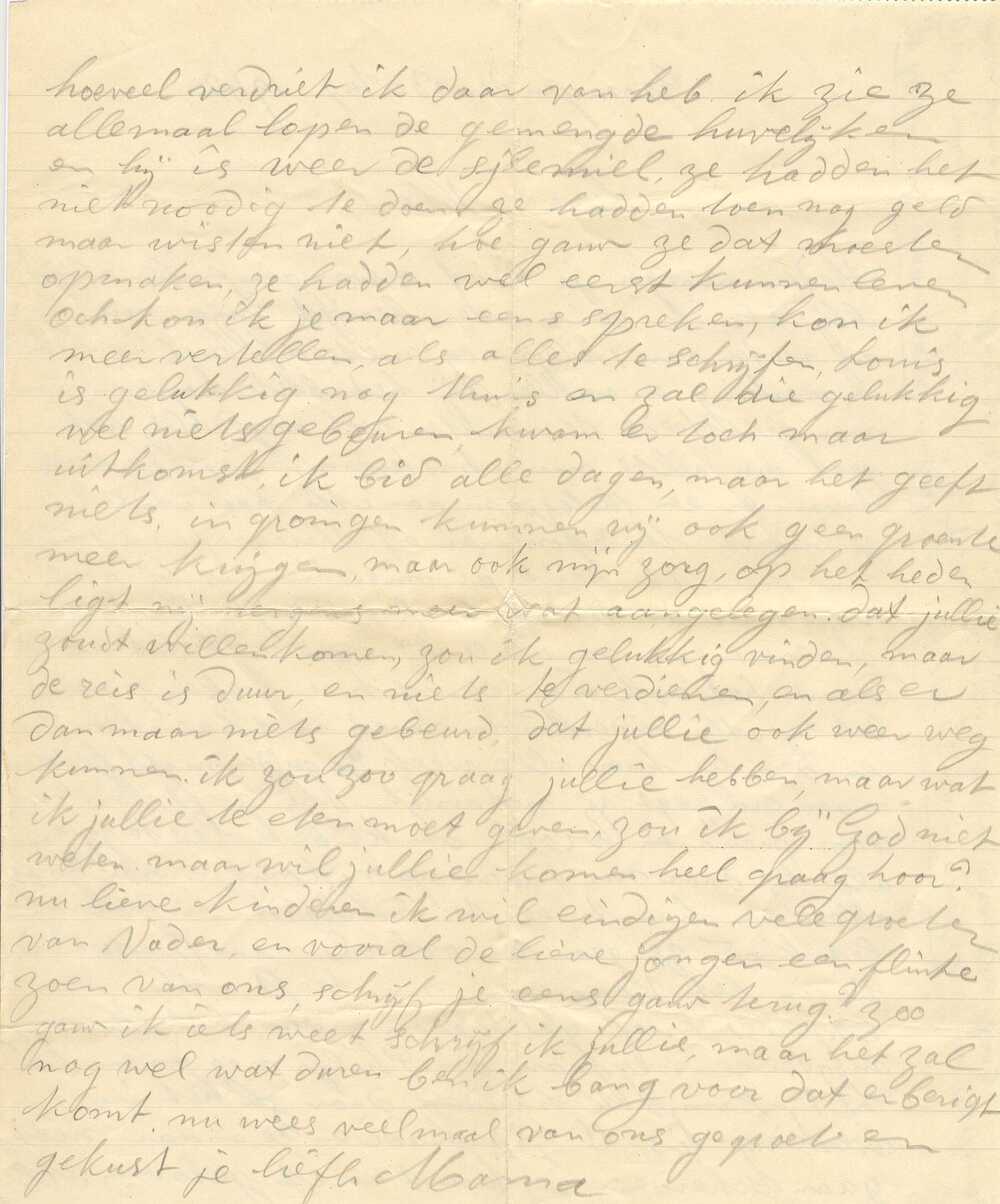 hoeveel verdriet ik daar van heb. ik zie ze
allemaal lopen de gemengde huwelijken
en hij is weer de sjlemiel, ze hadden het
niet noodig te doen, ze hadden toen nog geld
maar wisten niet, hoe gauw ze dat moesten
opmaken, ze hadden wel eerst kunnen leven
och kon ik je maar eens spreken, kon ik
meer vertellen, als alles te schrijfen, Louis
is gelukkig nog thuis en zal die gelukkig
wel niets gebeuren, kwam er toch maar
uitkomst, ik bid alle dagen, maar het geeft
niets, in groningen kunnen wij ook geen groente
meer krijgen, maar ook mijn zorg, op het heden
ligt mij nergens meer wat aangelegen. dat jullie
zoudt willen komen, zou ik gelukkig vinden, maar
de reis is duur, en niets te verdienen, en als er
dan maar niets gebeurd, dat jullie ook weer weg
kunnen. ik zou zoo graag jullie hebben, maar wat
ik jullie te eten moet geven, zou ik bij God niet
weten. maar wil jullie komen heel graag hoor?
nu lieve kinderen ik wil eindigen vele groeten
van Vader, en vooral de lieve jongen een flinke
zoen van ons, schrijf je eens gauw terug? zoo
gauw ik iets weet schrijf ik jullie, maar het zal
nog wel wat duren ben ik bang voor dat er berigt
komt. nu wees veelmaal van ons gegroet en
gekust je liefh Mama